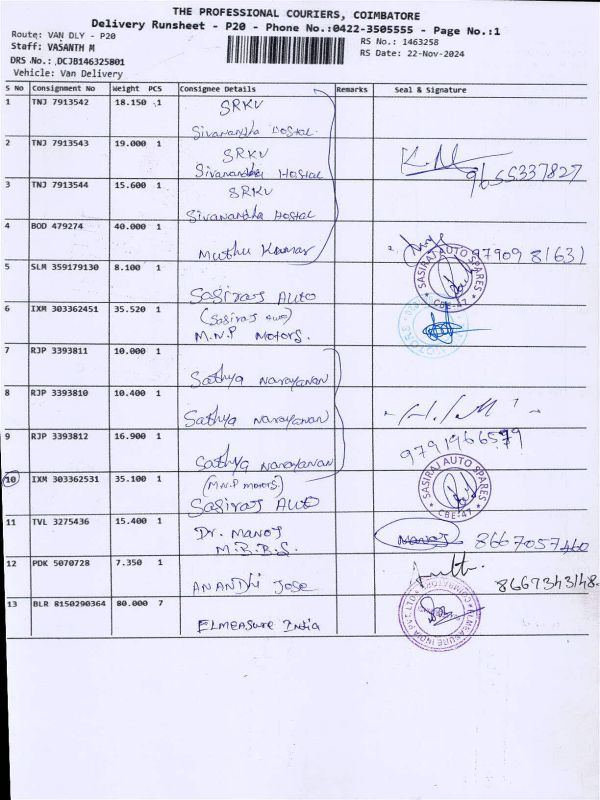 THE PROFESSIONAL COURIERS, COIMBATORE
Delivery Runsheet - P20 - Phone No.:0422-3505555 - Page No.:1
Route: VAN DLY - P20
RS No.: 1463258
Staff: VASANTH M
RS Date: 22-Nov-2024
DRS No.: DCJB146325801
Vehicle: Van Delivery
S No Consignment No Weight PCS Consignee Details Remarks Seal & Signature
1 TNJ 7913542 18.150 1 SRKV
Sivanandha Hostal
2 TNJ 7913543 19.000 1 SRKV
Sivanandha Hostal
9655337827
3 TNJ 7913544 15.600 1 SRKV
Sivanandha Hostal
4 BOD 479274 40.000 1 Muthu Kumar
97909 81631
5 SLM 359179130 8.100 1
Sasiraj Auto
SASIRAJ AUTO SPARES
CBE-47
6 IXM 303362451 35.520 1 (Sasiraj Auto)
M.N.P Motors.
7 RJP 3393811 10.000 1
Sathya Narayanan
8 RJP 3393810 10.400 1
Sathya Narayanan
9 RJP 3393812 16.900 1
Sathya Narayanan
10 IXM 303362531 35.100 1 (M.N.P Motors)
Sasiraj Auto
SASIRAJ AUTO SPARES
CBE-47
11 TVL 3275436 15.400 1 Dr. Manoj
M.B.B.S.
Manoj 8667057460
12 PDK 5070728 7.350 1
ANANDHi Jose
8667343148
13 BLR 8150290364 80.000 7
ELMEASURE India